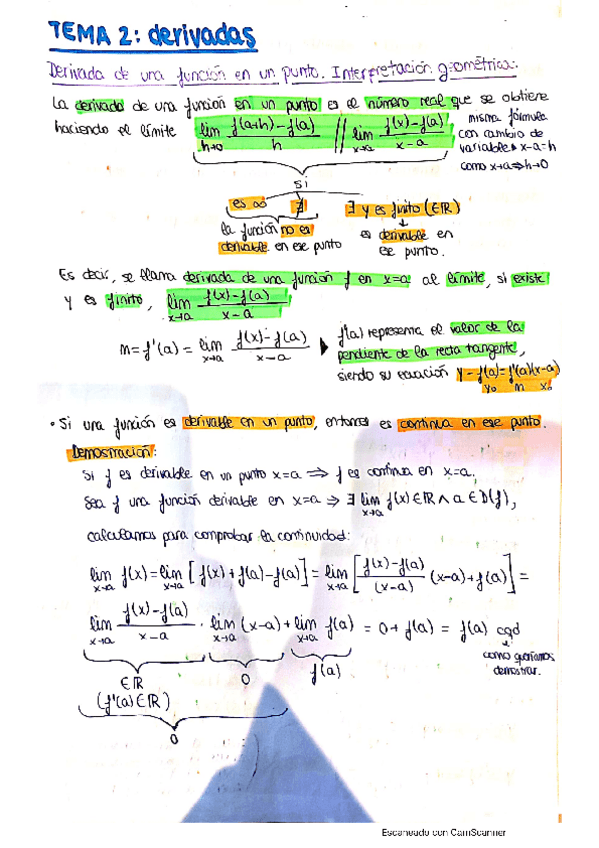 TEMA 2: derivadas
Derivada de una función en un punto. Interpretación geométrica:
La derivada de una función en un punto es el número real que se obtiene
haciendo el límite lim h→0 f(a+h)-f(a) / h // lim x→a f(x)-f(a) / x-a
misma fórmula
con cambio de
variable x-a=h
como x→a⇒h→0
si
es ∞ ∄ ∃ y es finito (∈ℝ)
la función no es
derivable en ese punto
es derivable en
ese punto.
Es decir, se llama derivada de una función f en x=a al límite, si existe
y es finito, lim x→a f(x)-f(a) / x-a
m=f'(a)= lim x→a f(x)-f(a) / x-a
f'(a) representa el valor de la
pendiente de la recta tangente,
siendo su ecuación y-f(a)=f'(a)(x-a)
y₀ m x₀
• Si una función es derivable en un punto, entonces es continua en ese punto.
Demostración:
Si f es derivable en un punto x=a ⇒ f es continua en x=a.
Sea f una función derivable en x=a ⇒ ∃ lim x→a f(x)∈ℝ ∧ a∈D(f),
calculamos para comprobar la continuidad:
lim x→a f(x)= lim x→a [f(x)+f(a)-f(a)] = lim x→a [f(x)-f(a) / (x-a) (x-a)+f(a)] =
lim x→a f(x)-f(a) / x-a · lim x→a (x-a)+ lim x→a f(a) = 0+f(a) = f(a) cqd
como queríamos
demostrar.
∈ℝ 0 f(a)
(f'(a)∈ℝ)
0
Escaneado con CamScanner